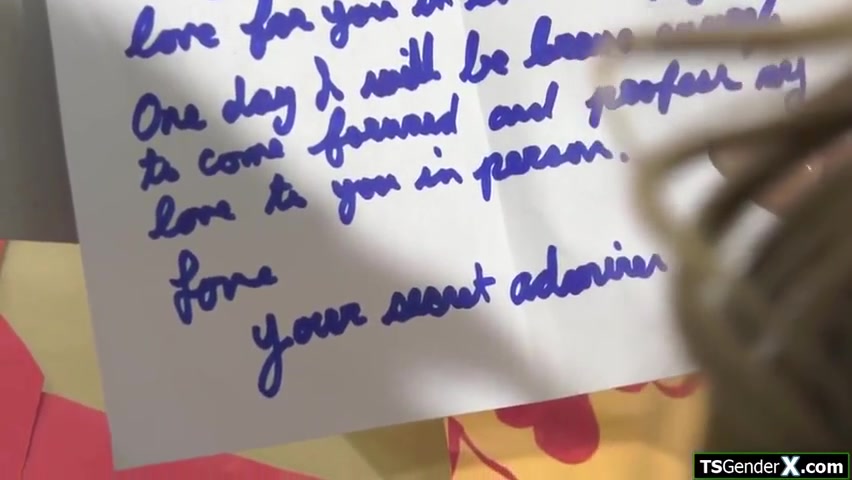 love for you in
One day I will be brave enough
to come forward and profess my
love to you in person.
Love
your secret admirer
TSGenderX.com